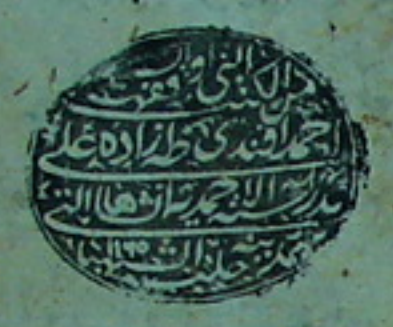 من الكتب التي وقفها
احمد افندي طه زاده على
مدرسته الاحمدية التي انشاها
بمدينة حلب الشهباء ١١٦٥